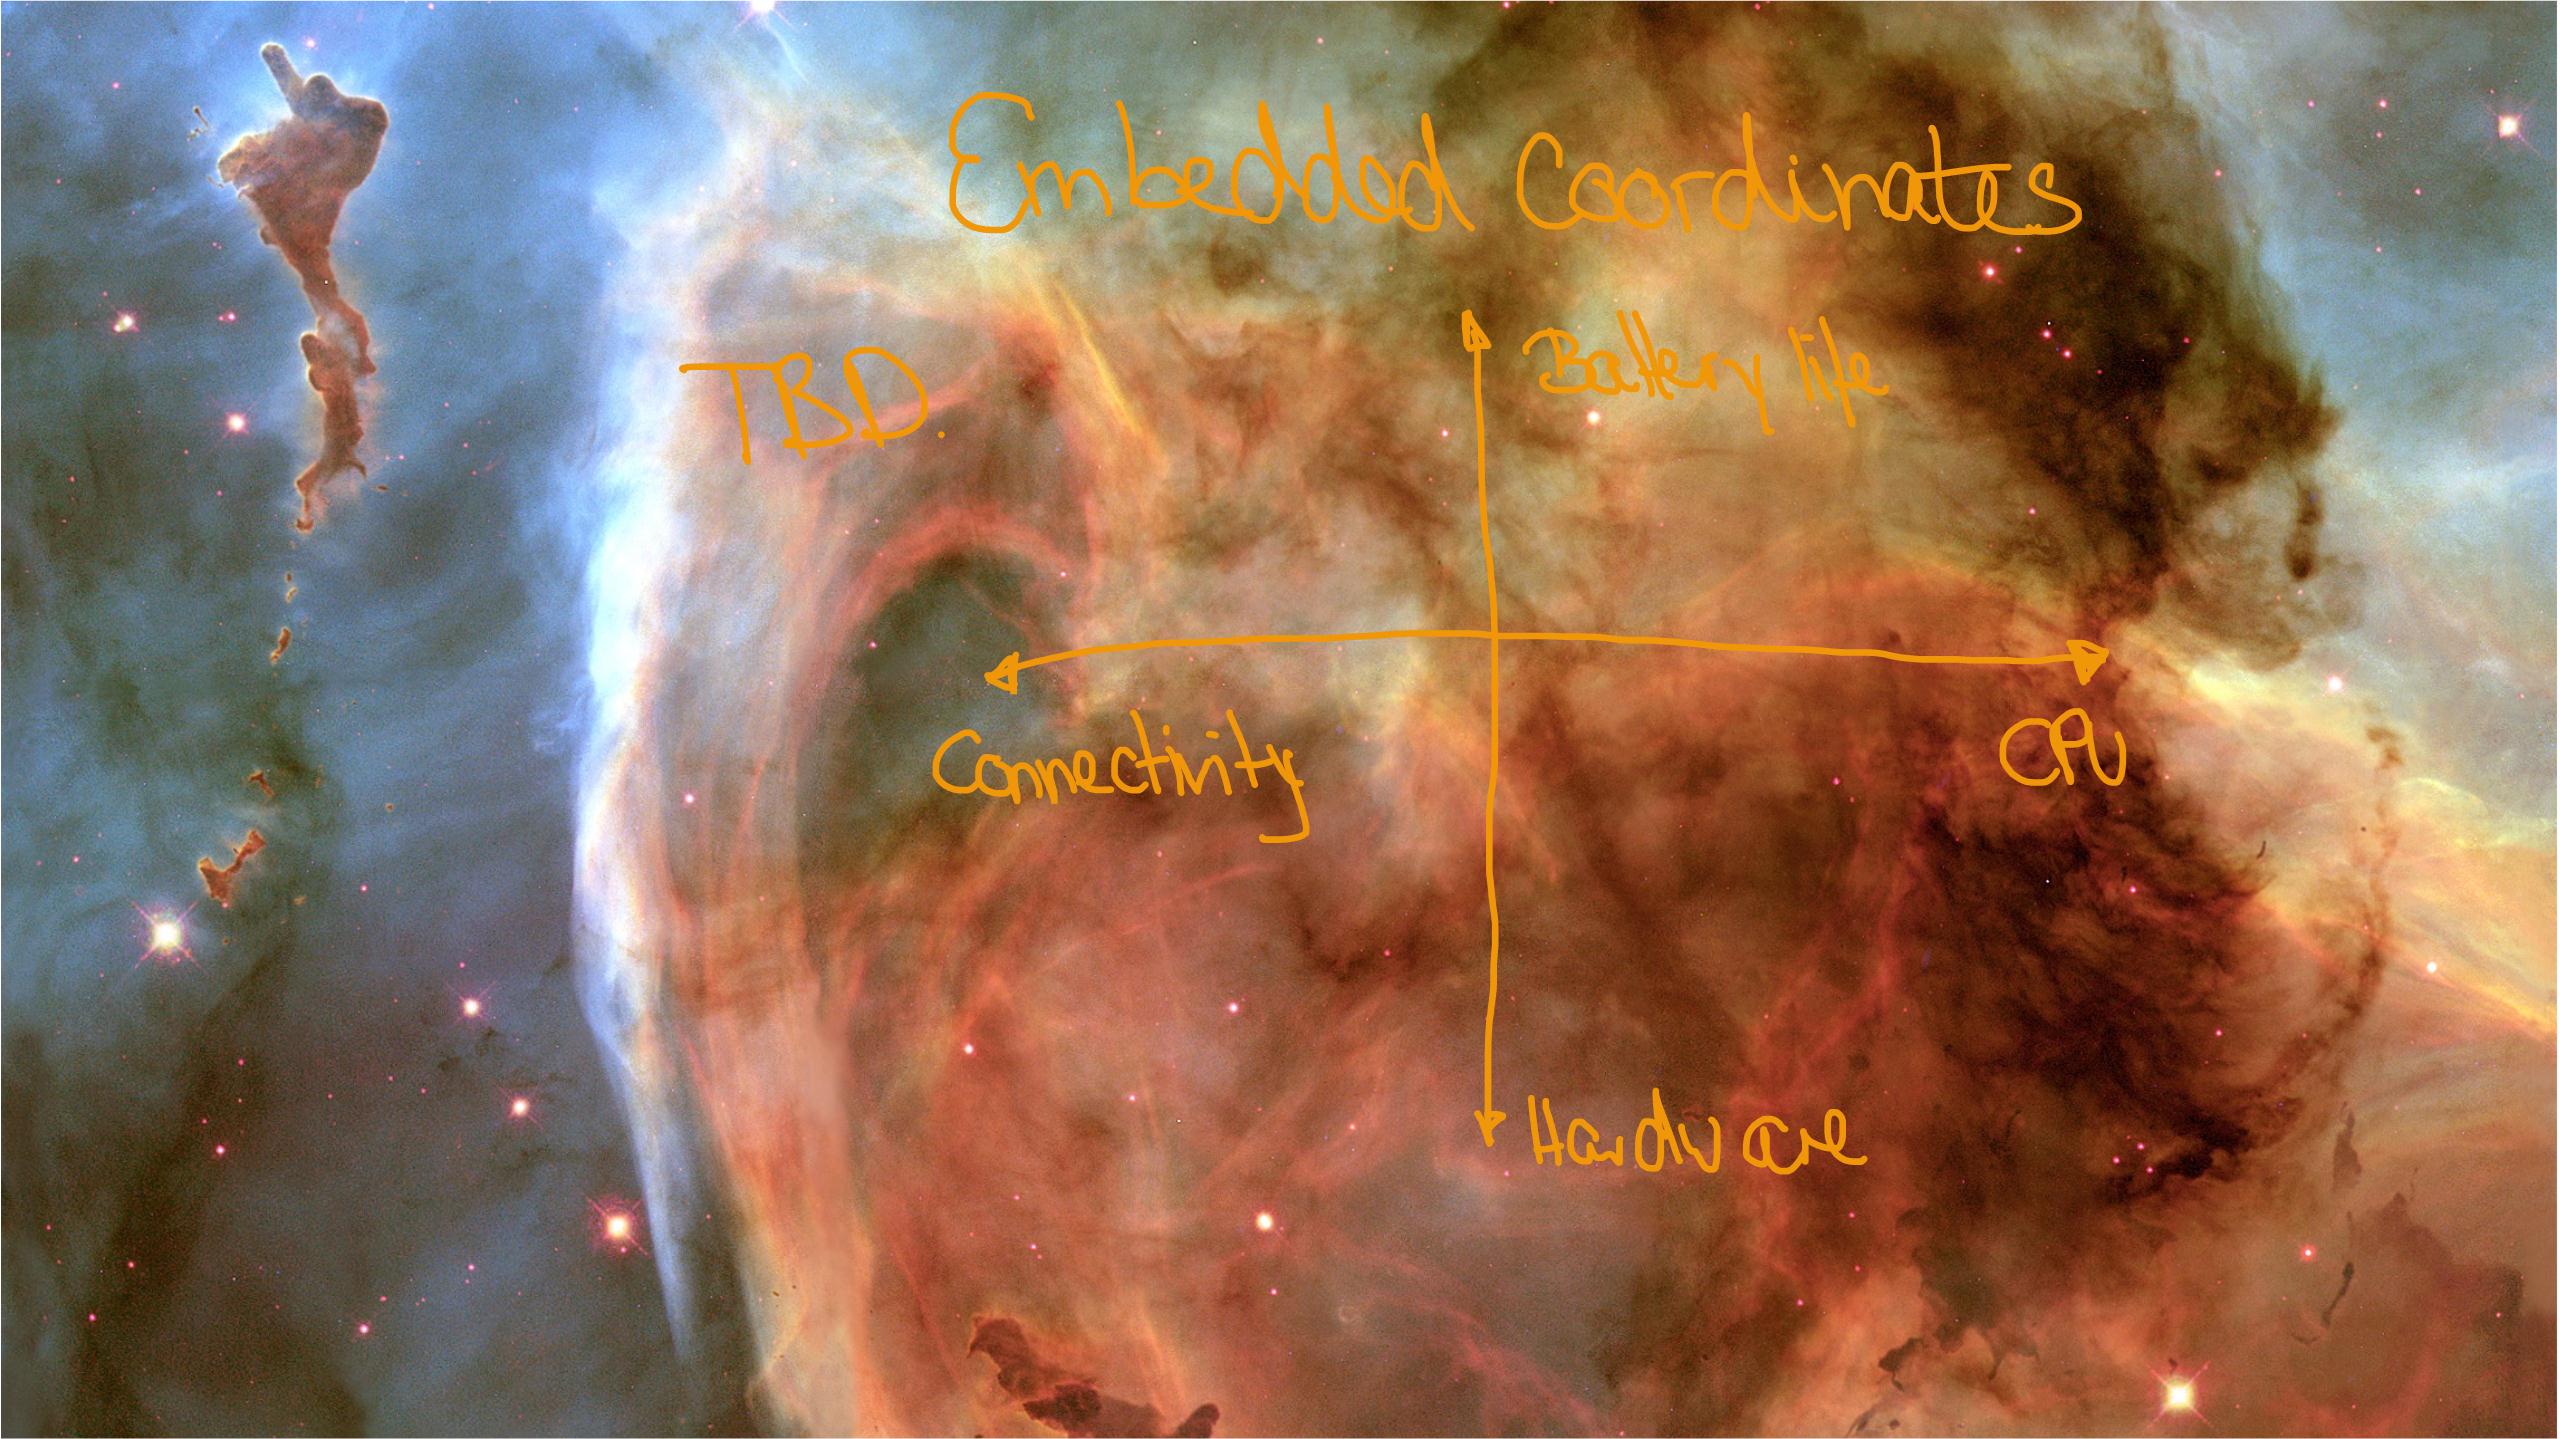 Embedded Coordinates
TBD.
Battery life
Connectivity
CPU
Hardware